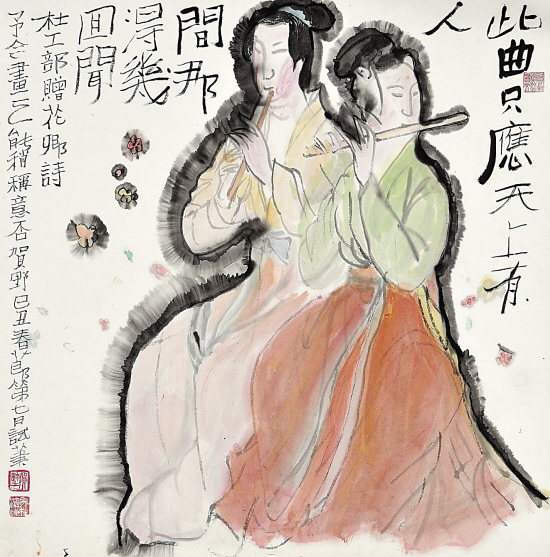 此曲只應天上有
人
間那
得幾
回聞
杜工部贈花卿詩
予今畫之能稍稱意否賀野己丑春節第七日試筆